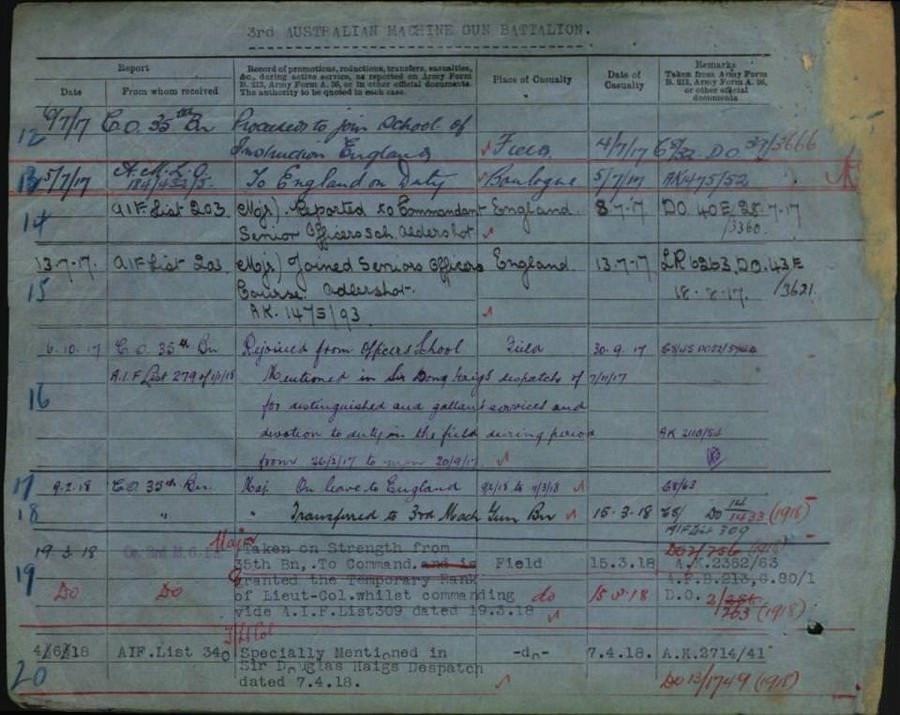 3rd AUSTRALIAN MACHINE GUN BATTALION.
Report
Date
From whom received
Record of promotions, reductions, transfers, casualties,
&c., during active service, as reported on Army Form
B. 213, Army Form A. 36, or in other official documents.
The authority to be quoted in each case.
Place of Casualty
Date of
Casualty
Remarks
Taken from Army Form
B. 213, Army Form A. 36,
or other official
documents
12
/7/17 C.O. 35th Bn Proceeded to join School of
Instruction England Field 4/7/17 DO 37/3666
13
5/7/17 A.M.L.O. To England on Duty Boulogne 5/7/17 AK1475/52
14
AIF List 203 (Maj) Reported to Commandant England 8-7-17 DO 40E 25-7-17
Senior Officers Sch. Aldershot /3360
15
13-7-17. AIF List 203 (Maj) Joined Seniors Officers England 13-7-17 LR 6263 DO.43E
Course. Aldershot. 18-8-17. /3621
AK.1475/93
16
6.10.17 C.O. 35th Bn Rejoined from Officers School Field 30.9.17
A.I.F List 279 of 1/1/18 Mentioned in Sir Doug Haigs despatch of 7/11/17
for distinguished and gallant services and
devotion to duty in the field during period AK 2110/54
from 26/2/17 to 20/9/17
17
9.2.18 C.O. 35th Bn. Maj. On leave to England 9/2/18 to 4/3/18 G8/63
18
" " Transferred to 3rd Mach Gun Bn 15.3.18 DO 14/1433 (1918)
AIF List 309
19
19.3.18 Co 3rd M.G. Major Taken on Strength from DO2/756 (1918)
35th Bn,.To Command. and is Field 15.3.18 A.K.2362/63
Do Do granted the Temporary Rank A.F.B.213,G.80/1
of Lieut-Col.whilst commanding do D.O. 2/286
vide A.I.F.List309 dated 19.3.18 763 (1918)
20
T/Lt Col
4/6/18 AIF.List 340 Specially Mentioned in -do- 7.4.18. A.K.2714/41
Sir Douglas Haigs Despatch
dated 7.4.18. DO 13/1749 (1918)